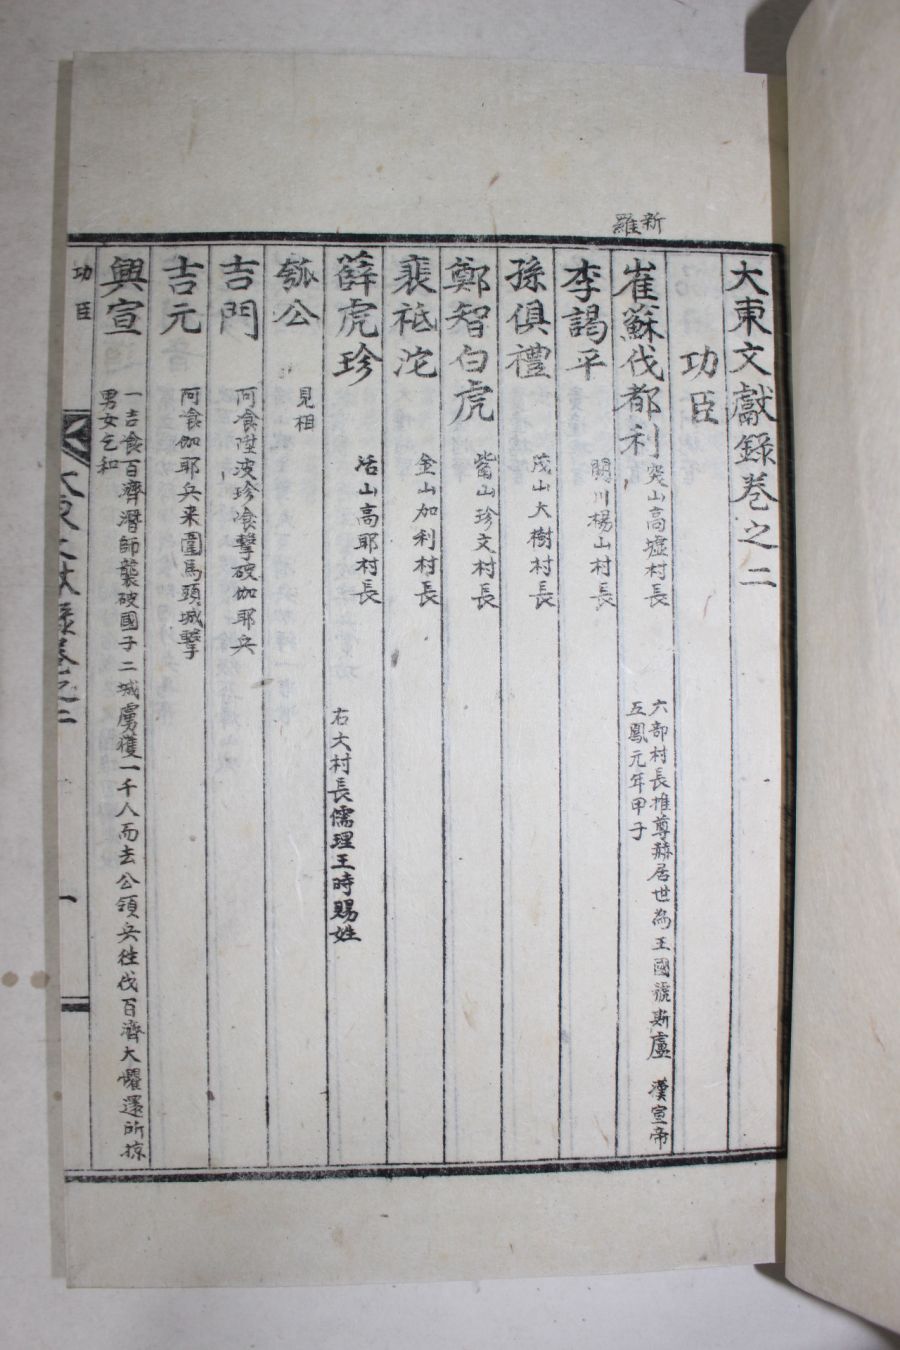 大東文獻錄卷之二
功臣
新羅
崔蘇伐都利
突山高墟村長
六部村長推尊赫居世為王國號斯盧 漢宣帝
五鳳元年甲子
李謁平
閼川楊山村長
孫俱禮
茂山大樹村長
鄭智白虎
觜山珍文村長
裴祗沱
金山加利村長
薛虎珍
活山高耶村長
右大村長儒理王時賜姓
瓠公
見相
吉門
阿飡陞波珍飡擊破伽耶兵
吉元
阿飡伽耶兵来圍馬頭城擊
興宣
一吉飡百濟潛師襲破國子二城虜獲一千人而去公領兵往伐百濟大懼還所掠
男女乞和
功臣
大東文献錄卷之二
一